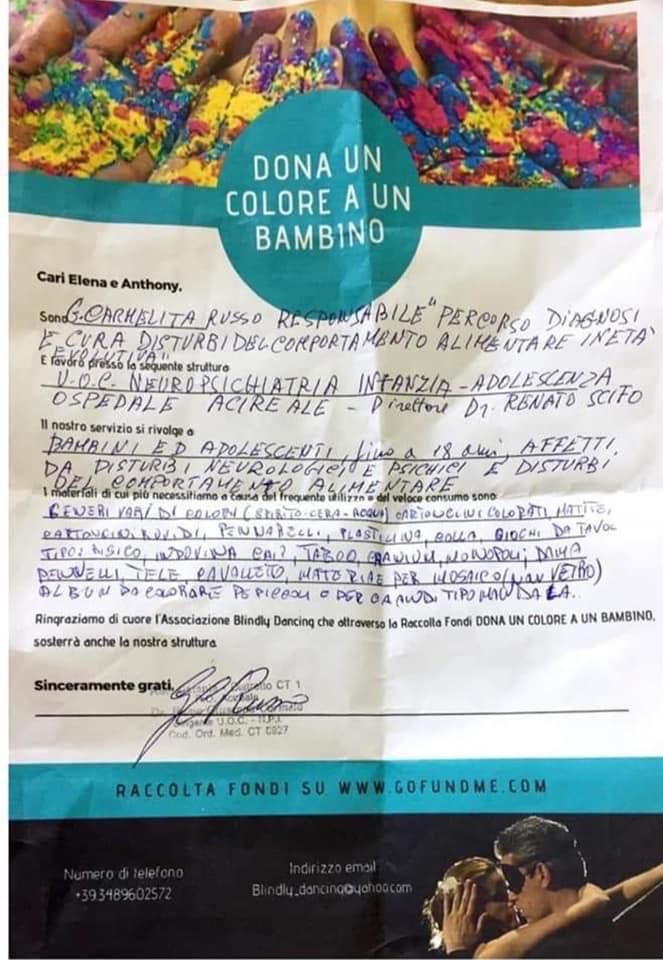 DONA UN
COLORE A UN
BAMBINO
Cari Elena e Anthony,
Sono G. CARMELITA RUSSO RESPONSABILE "PERCORSO DIAGNOSI
E CURA DISTURBI DEL COMPORTAMENTO ALIMENTARE IN ETÀ
EVOLUTIVA"
E lavoro presso la seguente struttura
U.O.C. NEUROPSICHIATRIA INFANZIA - ADOLESCENZA
OSPEDALE ACIREALE - Direttore Dr. RENATO SCIFO
Il nostro servizio si rivolge a
BAMBINI ED ADOLESCENTI, fino a 18 anni, AFFETTI
DA DISTURBI NEUROLOGICI E PSICHICI E DISTURBI
DEL COMPORTAMENTO ALIMENTARE
I materiali di cui più necessitiamo a causa del frequente utilizzo e del veloce consumo sono:
GENERI VARI DI COLORI (SPIRITO-CERA-ACQUA) CARTONCINI COLORATI, MATITE,
CARTONCINI RUVIDI, PENNARELLI, PLASTILINA, COLLA, GIOCHI DA TAVOL
TIPO: RISICO, INDOVINA CHI?, TABOO, CRANIUM, MONOPOLI,
PENNELLI, TELE, CAVALLETTO, MATERIALE PER MOSAICO (NON VETRO)
ALBUM DA COLORARE PER PICCOLI O PER GRANDI TIPO MANDALA..
Ringraziamo di cuore l'Associazione Blindly Dancing che attraverso la Raccolta Fondi DONA UN COLORE A UN BAMBINO,
sosterrà anche la nostra struttura
Sinceramente grati,
CT 1
U.O.C. - N.P.I.
Cod. Ord. Med. CT 0927
RACCOLTA FONDI SU WWW.GOFUNDME.COM
Numero di telefono
+393489602572
Indirizzo email
Blindly_dancing@yahoo.com